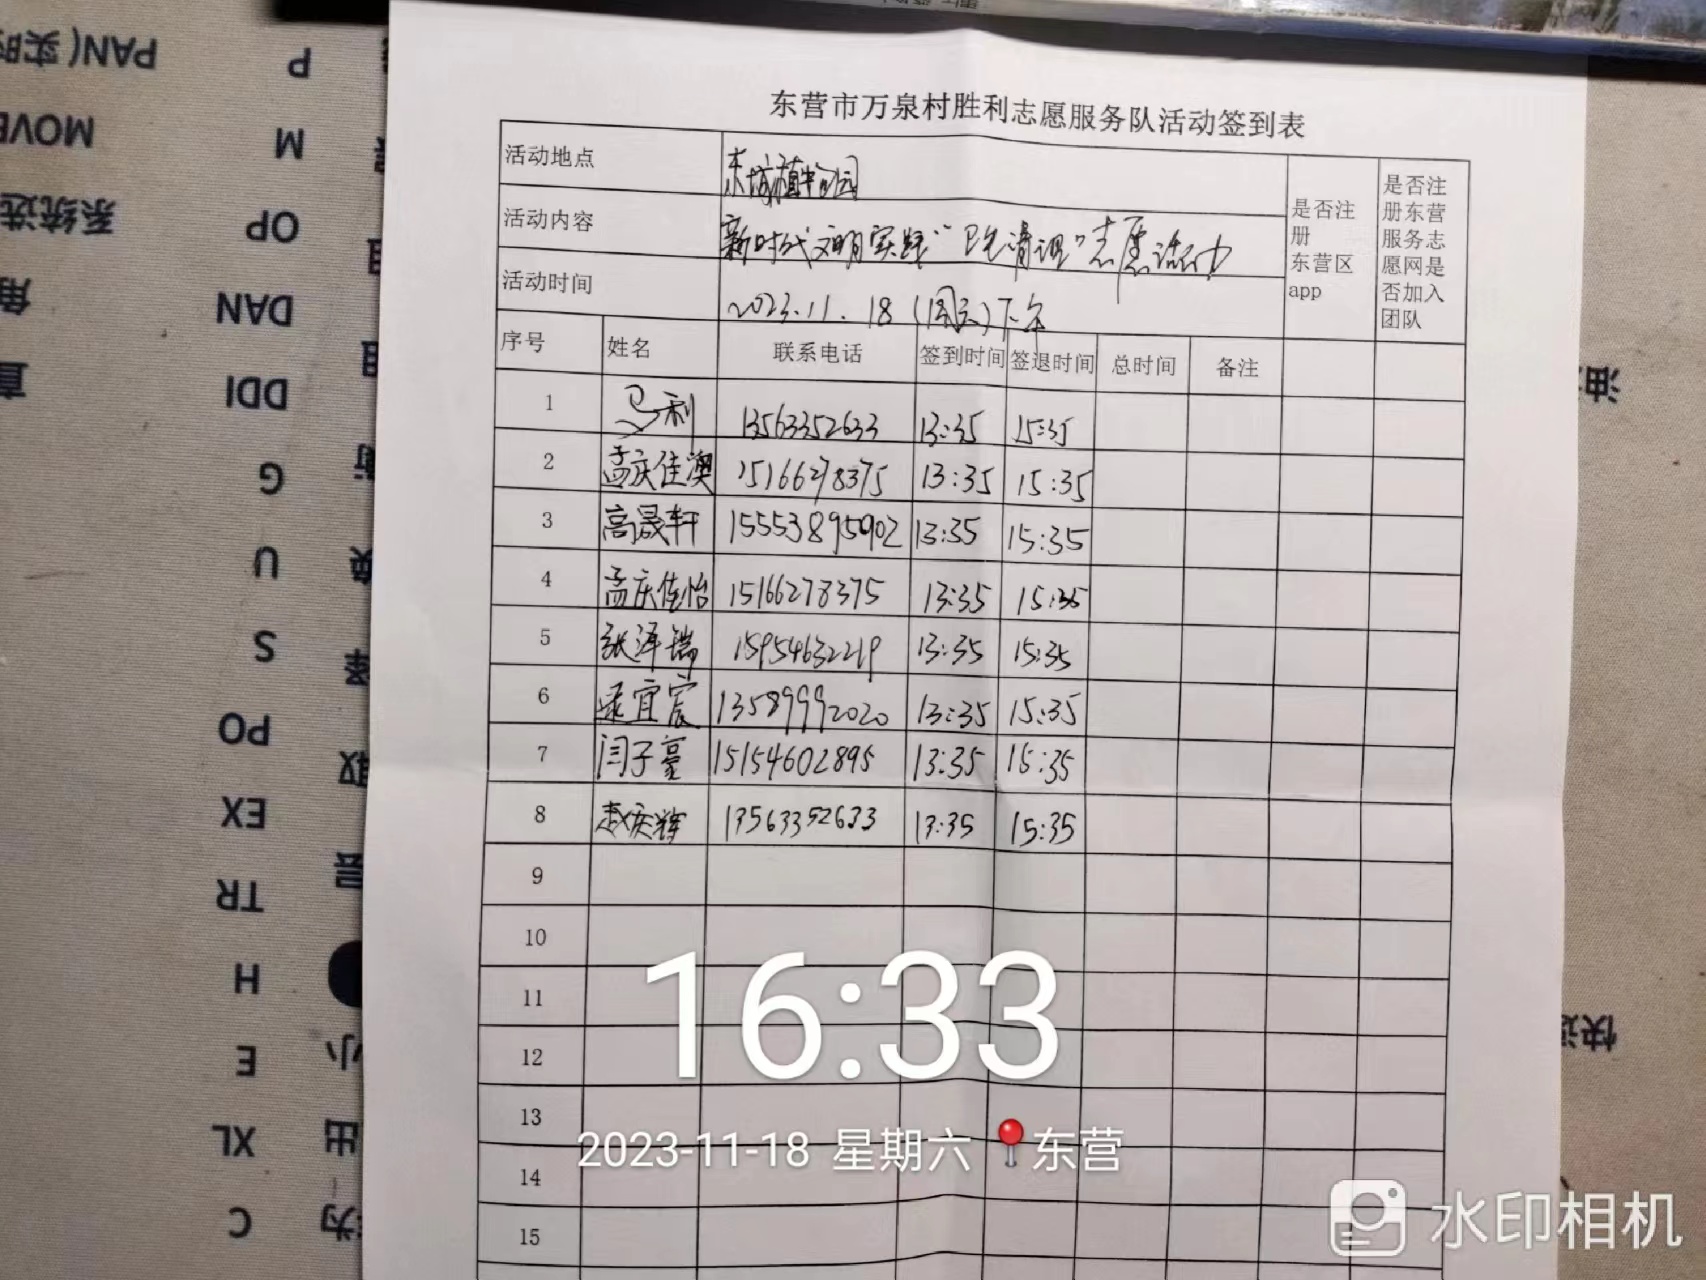 东营市万泉村胜利志愿服务队活动签到表
活动地点 东城植物园
活动内容 新时代文明实践“ 清理”志愿活动
活动时间 2023.11.18(周六)下午
是否注册东营区app
是否注册东营服务志愿网是否加入团队
序号 姓名 联系电话 签到时间 签退时间 总时间 备注
1 利 13563352633 13:35 15:35
2 孟庆佳澳 15166278375 13:35 15:35
3 高晟轩 15553895902 13:35 15:35
4 孟庆佳怡 15166278375 13:35 15:35
5 张泽瑞 15954632219 13:35 15:35
6 宜宸 13589992020 13:35 15:35
7 闫子豪 15154602895 13:35 15:35
8 赵庆辉 13563352633 13:35 15:35
9
10
11
12
13
14
15
16:33
2023-11-18 星期六 东营
水印相机
PAN(实时
P
MOVE
M
系统选
OP
角
DAN
直
DDI
G
U
S
PO
EX
TR
H
E
XL
C
小
出
为
取
层
油
快速